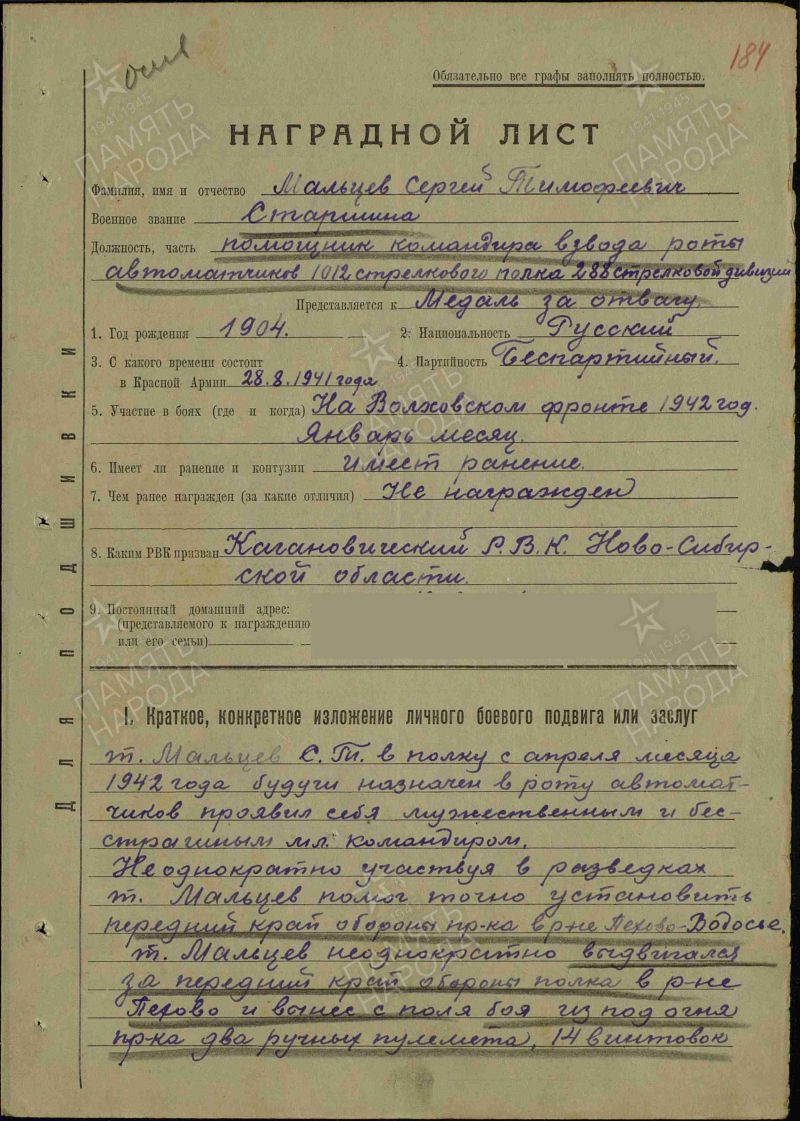 184
Обязательно все графы заполнять полностью.
НАГРАДНОЙ ЛИСТ
Фамилия, имя и отчество Мальцев Сергей Тимофеевич
Военное звание Старшина
Должность, часть помощник командира взвода роты
автоматчиков 1012 стрелкового полка 288 стрелковой дивизии
Представляется к Медаль за отвагу.
1. Год рождения 1904. 2. Национальность Русский
3. С какого времени состоит 4. Партийность Беспартийный.
в Красной Армии 28.8.1941 года
5. Участие в боях (где и когда) На Волховском фронте 1942 год.
Январь месяц.
6. Имеет ли ранение и контузии имеет ранение.
7. Чем ранее награжден (за какие отличия) Не награжден
8. Каким РВК призван Кагановический Р.В.К. Ново-Сибир-
ской области.
9. Постоянный домашний адрес:
(представляемого к награждению
или его семьи)
Для подшивки
I. Краткое, конкретное изложение личного боевого подвига или заслуг
т. Мальцев С.Т. в полку с апреля месяца
1942 года будучи назначен в роту автомат-
чиков проявил себя мужественным и бес-
страшным мл. командиром.
Неоднократно участвуя в разведках
т. Мальцев помог точно установить
передний край обороны пр-ка в р-не Пехово-Водосье.
т. Мальцев неоднократно выдвигался
за передний край обороны полка в р-не
Пехово и вынес с поля боя из под огня
пр-ка два ручных пулемета, 14 винтовок
ПАМЯТЬ НАРОДА
1941-1945